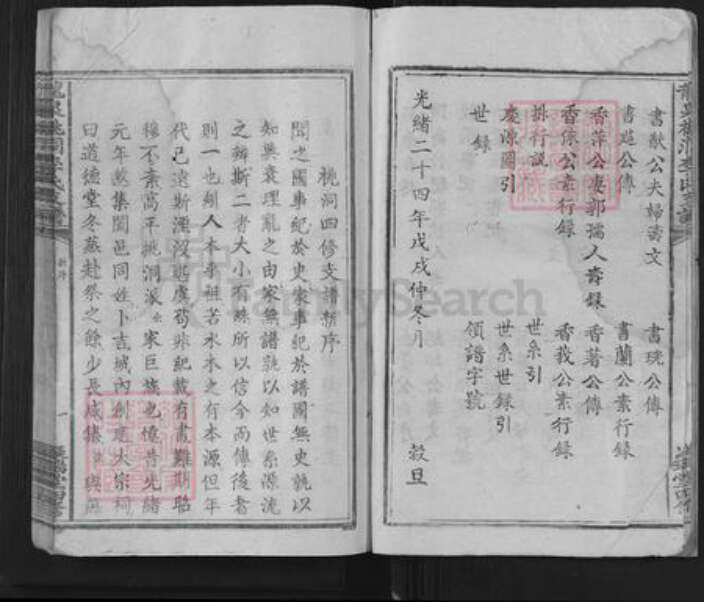 書猷公夫婦壽文
書璄公傳
書蘭公素行錄
香萍公妻郭孺人壽錄
香蓍公傳
香依公素行錄
香莪公素行錄
排行說
世系引
慶源圖引
世系世錄引
世錄
領譜字號
光緒二十四年戊戌仲冬月 穀旦
桃洞四修支譜新序
聞之國事紀於史家事紀於譜國無史孰以
知興衰理亂之由家無譜孰以知世系源流
之辨斯二者大小有殊所以信今而傳後者
則一也顧人本乎祖若水木之有本源但年
代已遠斯湮沒
紀載有書難期昭
穆不紊高平桃洞派 家巨族也憶昔光緒
元年欲集闔邑同姓卜吉城內創建大宗祠
曰道德堂冬蒸赴祭之餘少長咸集
FamilySearch